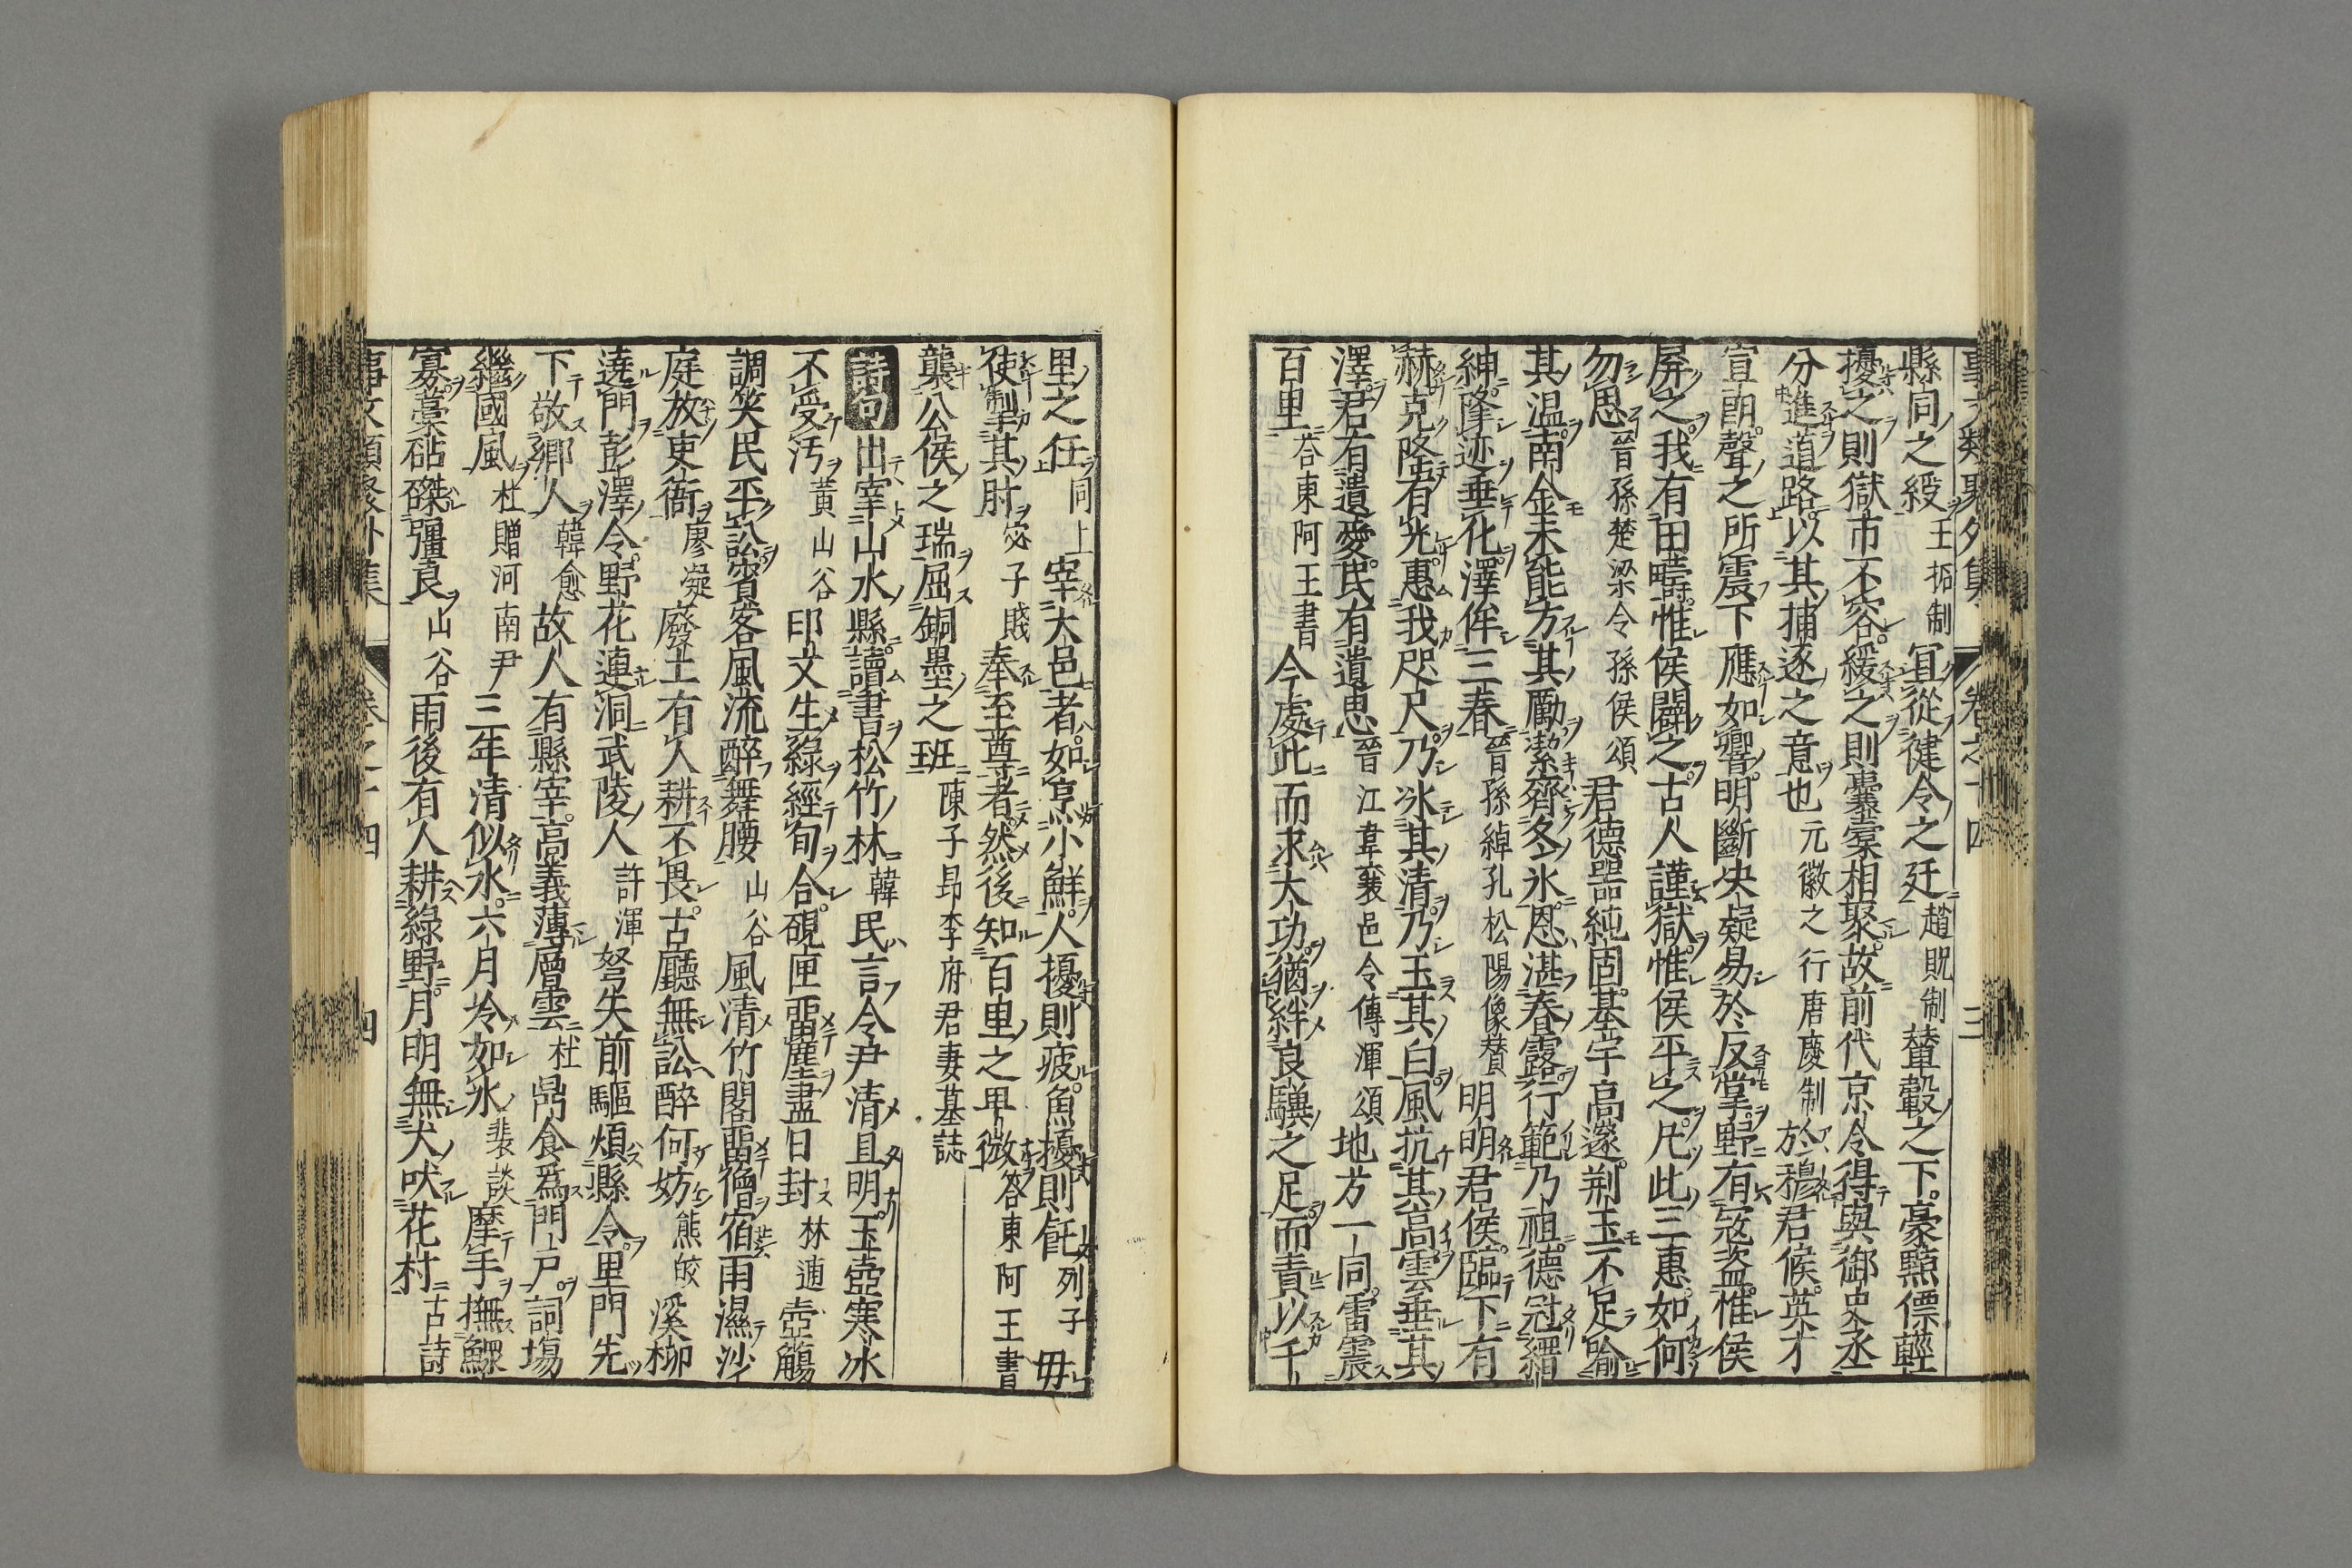 縣同之綬王拓制宜從健令之廷趙貺制輦轂之下豪黠僄輕
擾之則獄市不容緩之則囊橐相聚故前代京令得與御史丞
分進道路以其捕逐之意也元微之行唐慶制於穆君侯英才
宣朗聲之所震下應如響明斷決疑易於反掌野有寇盜惟侯
屏之我有田疇惟侯闢之古人謹獄惟侯平之凡此三惠如何
勿思晉孫楚梁令孫侯頌君德器純固基宇高邃荊玉不足喻
其温南金未能方其勵潔齊冬氷恩湛春露行範乃祖德冠縉
紳隆迹垂化澤侔三春晉孫綽孔松陽像賛明明君侯臨下有
赫克隆有光惠我咫尺乃氷其清乃玉其白風抗其高雲垂其
澤君有遺愛民有遺思晉江韋襄邑令傳渾頌地方一同雷震
百里荅東阿王書今處此而求大功猶絆良驥之足而責以千
里之任同上宰大邑者如烹小鮮人擾則疲魚擾則飪列子毋
使掣其肘宓子賤奉至尊者然後知百里之卑微答東阿王書
襲公侯之瑞屈銅墨之班陳子昂李府君妻墓誌
詩句出宰山水縣讀書松竹林韓民言令尹清且明玉壺寒冰
不受汚黃山谷印文生綠經旬合硯匣留塵盡日封林逋壺觴
調笑民平訟賓客風流醉舞腰山谷風清竹閣留僧宿雨濕沙
庭放吏衙廖凝廢土有人耕不畏古廳無訟醉何妨熊皎溪柳
遶門彭澤令野花連洞武陵人許渾弩矢前驅煩縣令里門先
下敬鄉人韓愈故人有縣宰高義薄層雲杜鼎食爲門戶詞場
繼國風杜贈河南尹三年清似水六月冷如氷裴談摩手撫鰥
寡藁砧磔彊良山谷雨後有人耕綠野月明無犬吠花村古詩